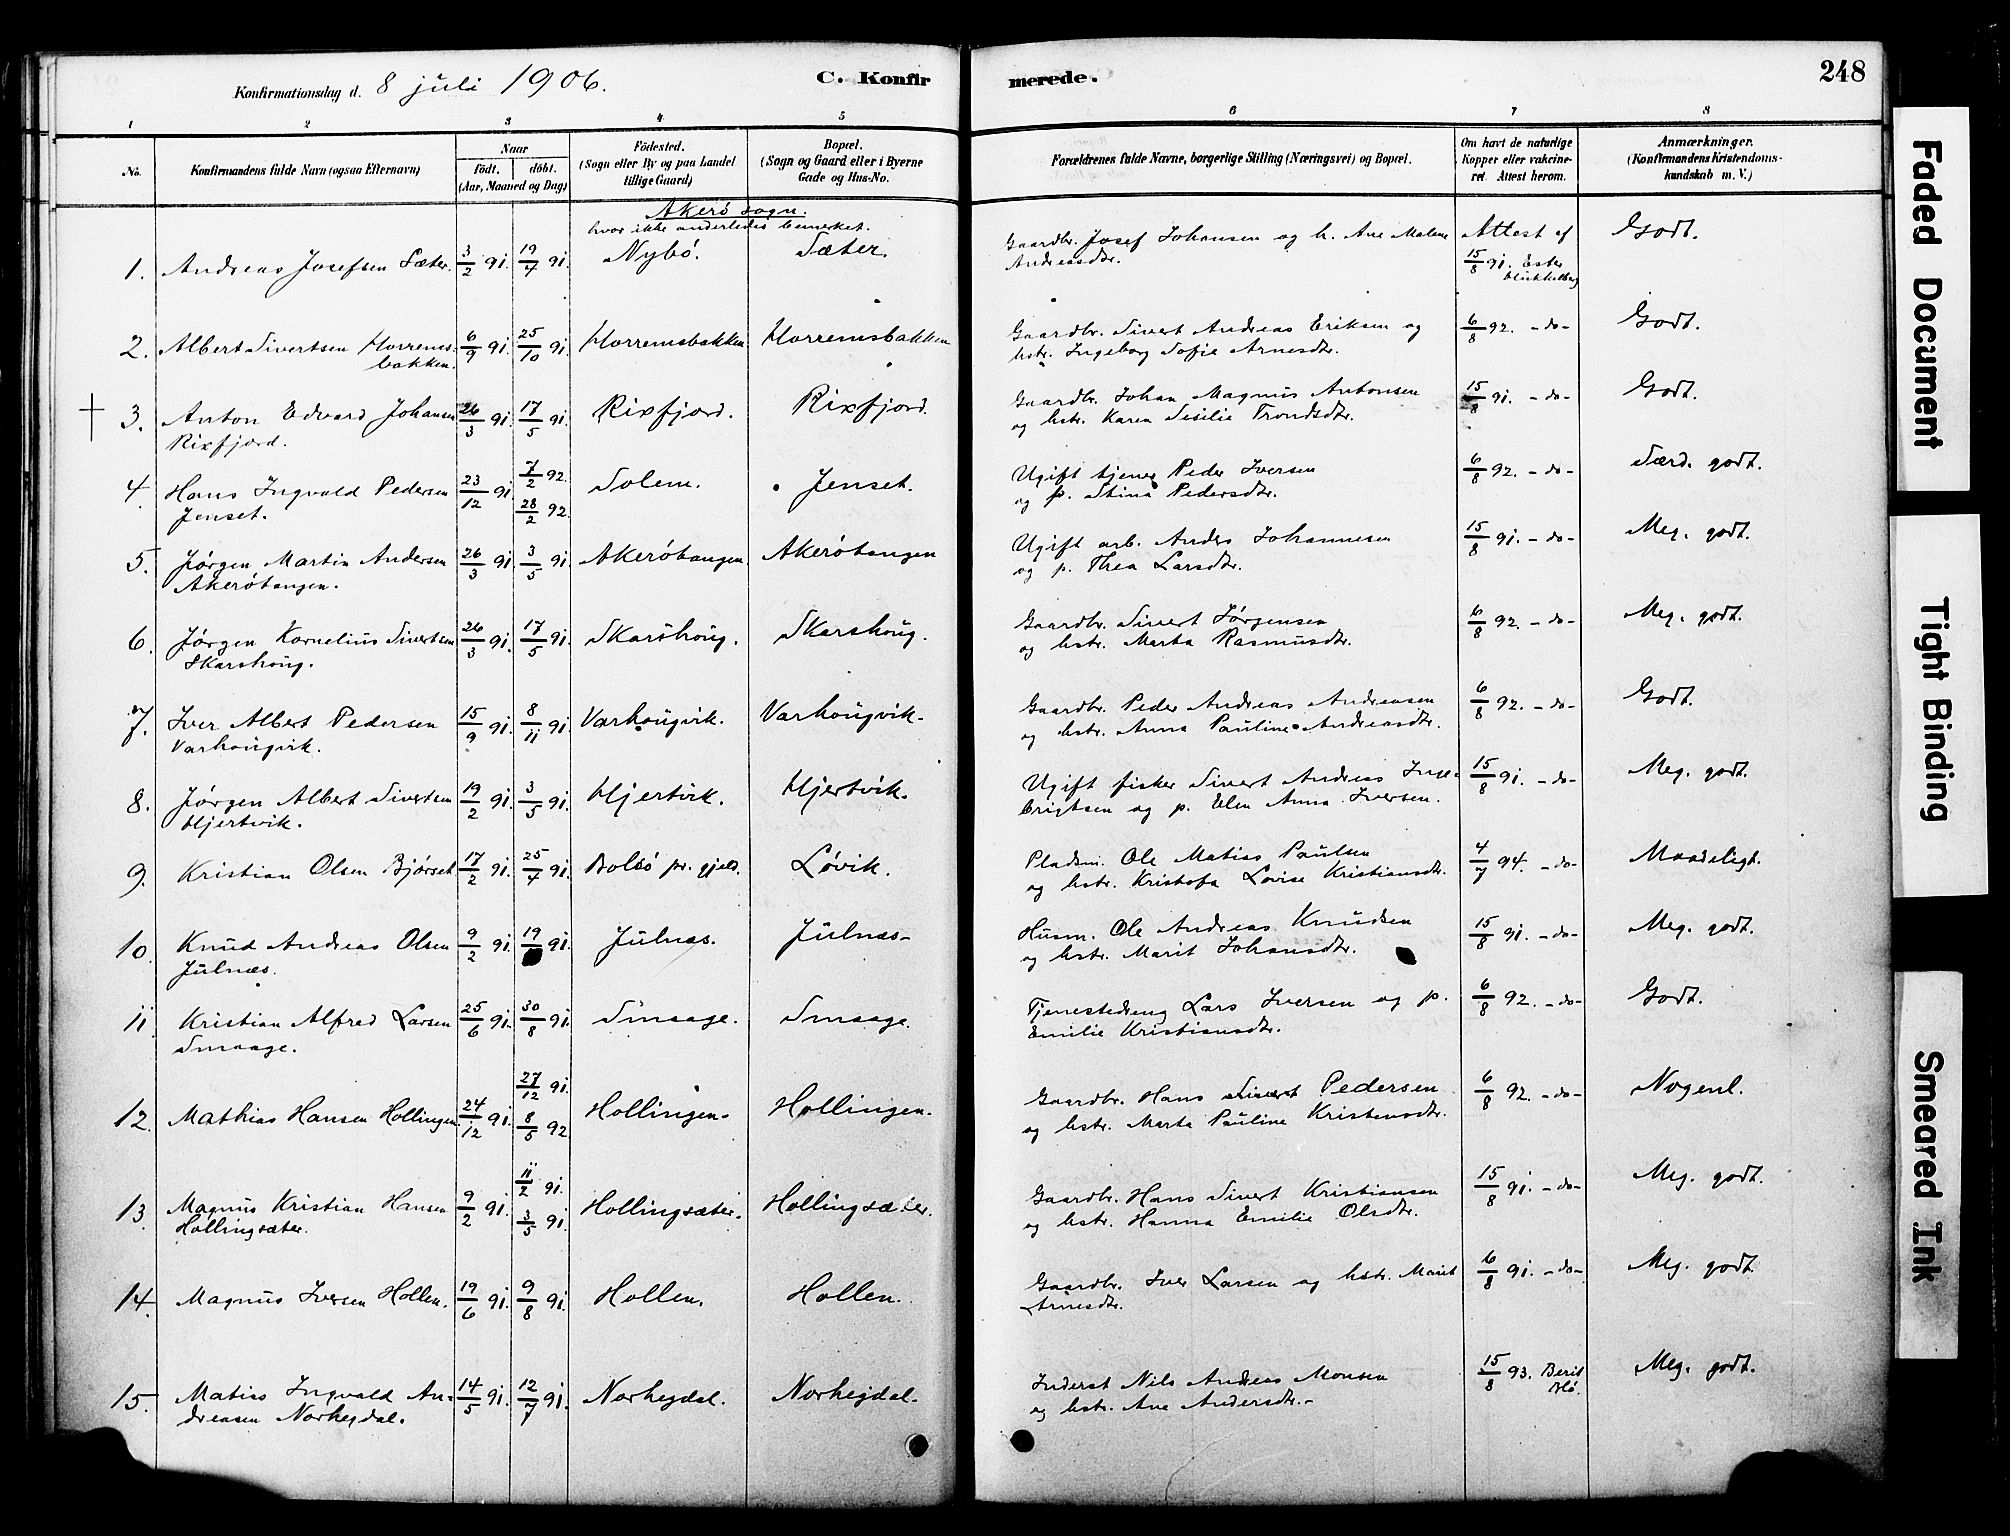 Konfirmationsdag d. 8 juli 1906.
C. Konfir
merede.
248
1 2 3 4 5 6 7 8
No.
Konfirmandens fulde Navn (ogsaa Efternavn)
Naar
födt. döbt.
(Aar, Maaned og Dag)
Födested.
(Sogn eller By og paa Landet
tillige Gaard)
Bopæl.
(Sogn og Gaard eller i Byerne
Gade og Hus-No.
Forældrenes fulde Navne, borgerlige Stilling (Næringsvei) og Bopæl.
Om havt de naturlige
Kopper eller vakcine-
ret. Attest herom.
Anmærkninger.
(Konfirmandens Kristendoms-
kundskab m. V.)
Akerö sogn.
hvor ikke anderledes bemerket.
1. Andreas Josefsen Sæter. 3/2 91. 19/4 91. Nybö. Sæter. Gaardbr. Josef Johansen og h. Ane Malene Attest af Godt.
Andreasdtr. 15/8 91. Ester
2. Albert Sivertsen Horrems- 6/9 91. 25/10 91. Horremsbakken Horremsbakken Gaardbr. Sivert Andreas Eriksen og 6/8 92. -do- Godt.
bakken. hstr. Ingeborg Sofie Arnesdtr.
3. Anton Edvard Johansen 26/3 91. 17/5 91. Rixfjord. Rixfjord. Gaardbr. Johan Magnus Antonsen 15/8 91. -do- Godt.
Rixfjord. og hstr. Karen Sesilie Trondsdtr.
4. Hans Ingvald Pedersen 23/12 91. 7/2 92. 28/2 92. Solem. Jenset. Ugift tjener Peder Iversen 6/8 92. -do- Særd. godt.
Jenset. og p. Stina Pedersdtr.
5. Jørgen Martin Andersen 26/3 91. 3/5 91. Akerötangen. Akerötangen Ugift arb. Anders Johannesen 15/8 91. -do- Meg. godt.
Akerötangen. og p. Thea Larsdtr.
6. Jørgen Kornelius Sivertsen 26/3 91. 17/5 91. Skarshoug. Skarshoug. Gaardbr. Sivert Jørgensen 6/8 92. -do- Meg. godt.
Skarshoug. og hstr. Marta Rasmusdtr.
7. Iver Albert Pedersen 15/9 91. 8/11 91. Varhougvik. Varhougvik. Gaardbr. Peder Andreas Andreasen 6/8 92. -do- Godt.
Varhougvik. og hstr. Anna Pauline Andreasdtr.
8. Jørgen Albert Sivertsen 19/2 91. 3/5 91. Hjertvik. Hjertvik. Ugift fisker Sivert Andreas Inge- 15/8 91. -do- Meg. godt.
Hjertvik. brigtsen og p. Elen Anna Iversen.
9. Kristian Olsen Bjørset 17/2 91. 25/4 91. Bolsö pr. gjeld. Løvik. Pladsm. Ole Matias Paulsen 4/7 94. -do- Maadeligt.
og hstr. Kristofa Lovise Kristiansdtr.
10. Knud Andreas Olsen 9/2 91. 19/ 91. Julnæs. Julnæs. Husm. Ole Andreas Knudsen 15/8 91. -do- Meg. godt.
Julnæs. og hstr. Marit Johansdtr.
11. Kristian Alfred Larsen 25/6 91. 30/8 91. Smaage. Smaage. Tjenestedreng Lars Iversen og p. 6/8 92. -do- Godt.
Smaage. Emilie Kristiansdtr.
12. Mathias Hansen Hollingen 24/12 91. 27/12 91. 8/5 92. Hollingen. Hollingen. Gaardbr. Hans Sivert Pedersen 6/8 92. -do- Nogenl.
og hstr. Marta Pauline Kristensdtr.
13. Magnus Kristian Hansen 9/2 91. 11/2 91. 3/5 91. Hollingsæter. Hollingsæter. Gaardbr. Hans Sivert Kristiansen 15/8 91. -do- Meg. godt.
Hollingsæter. og hstr. Hanna Emilie Olsdtr.
14. Magnus Iversen Hollen. 19/6 91. 9/8 91. Hollen. Hollen. Gaardbr. Iver Larsen og hstr. Marit 6/8 91. -do- Meg. godt.
Arnesdtr.
15. Matias Ingvald An- 14/5 91. 12/7 91. Norhejdal. Norhejdal. Inderst Nils Andreas Monsen 15/8 93. Berit Meg. godt.
dreasen Norhejdal. og hstr. Ane Andersdtr.
Faded Document
Tight Binding
Smeared Ink